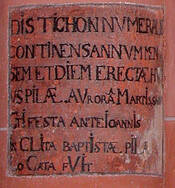 DISTICHON NVMERAL
CONTINENS ANNVM MEN
SEM ET DIEM ERECTÆ H
VS PILÆ AVRORÂ MARTIS
FESTA ANTE IOANNIS
CLITA BAPTISTÆ PILA
CATA FVIT